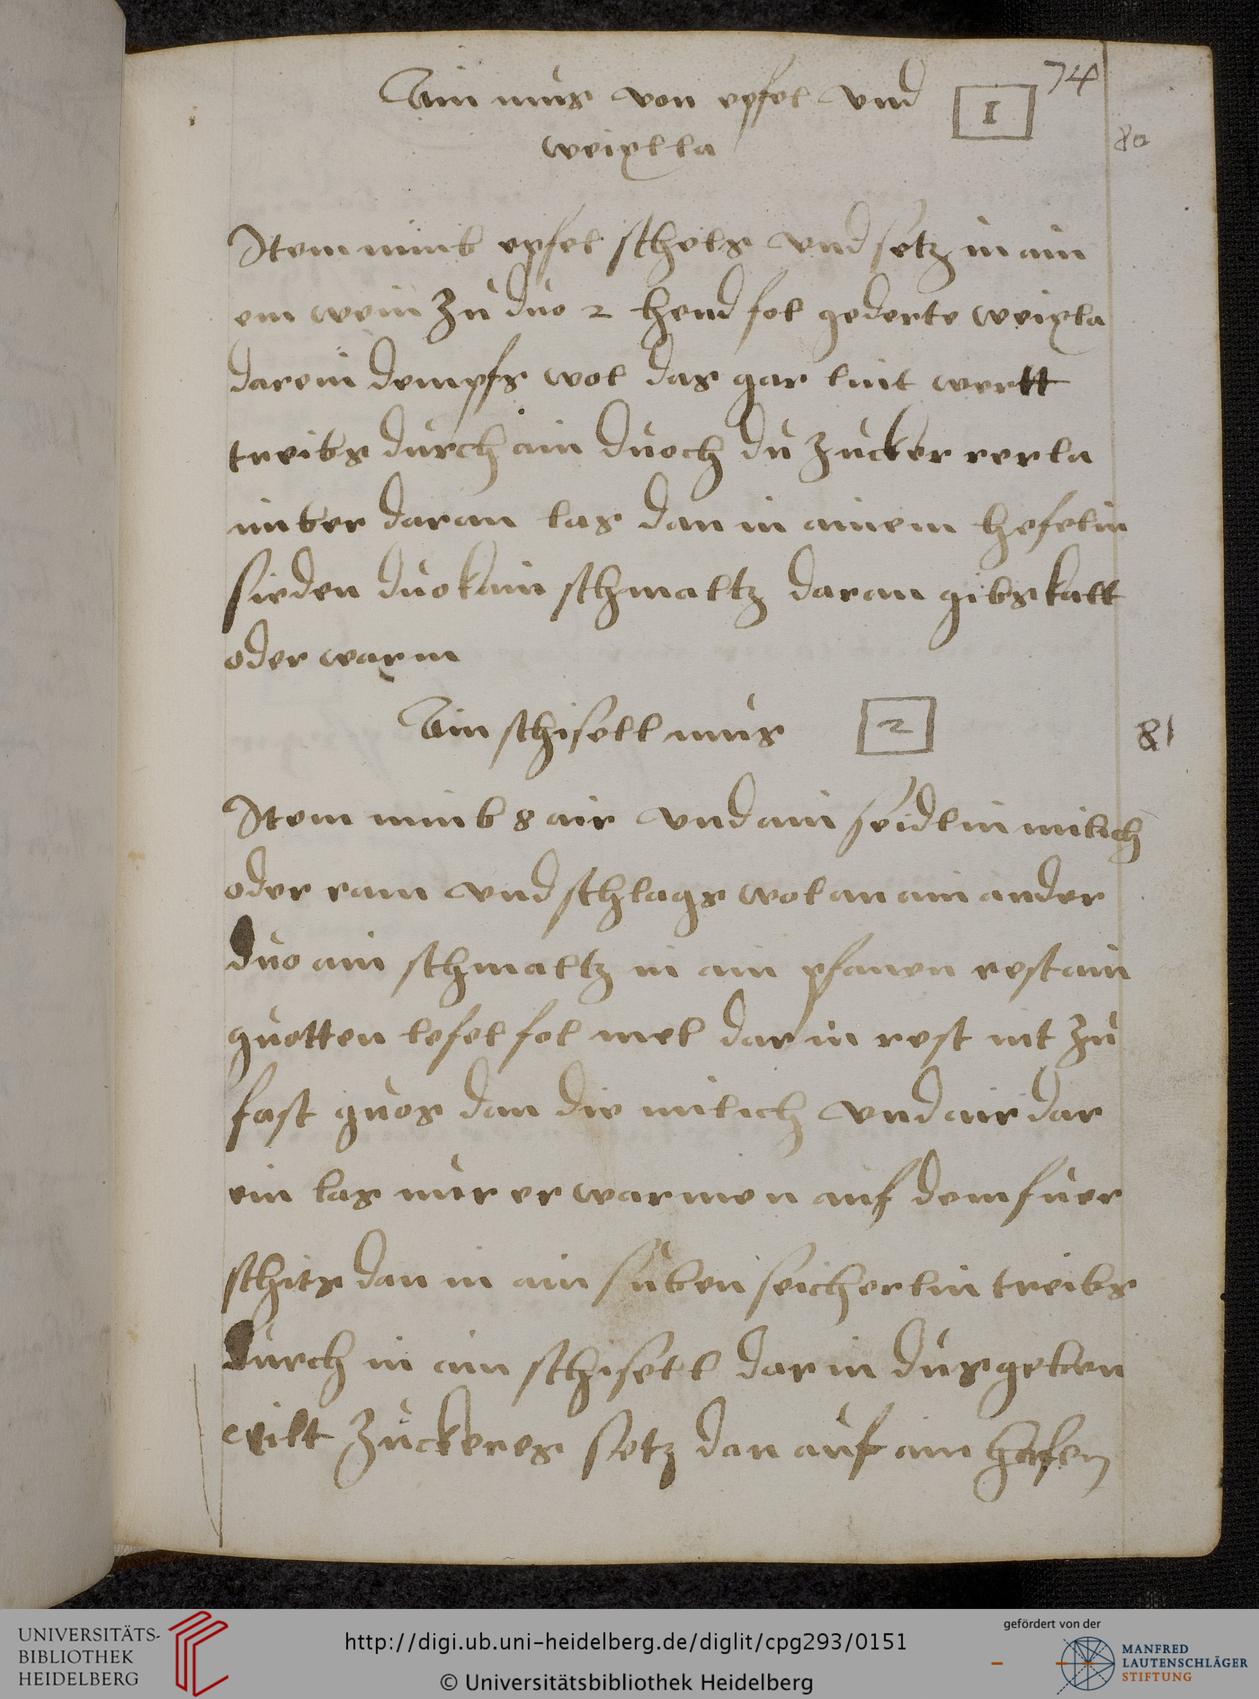 74
Ain mus von epfel vnd
1
weixlla
80
Item nimb epfel schels vnd setz in ain
em wein zu duo 2 hend fol gederte weixla
darein dempfs wol das gar lint wertt
treibs durch ain duoch du zucker rerla
imber daran las dan in ainem hefelin
sieden duo kain schmaltz daran gibs kalt
oder warm
Ain schisell mus
2
81
Item nimb 8 air vnd ain seidlin milich
oder ram vnd schlags wol an ain ander
duo ain schmaltz in ain pfanen rest ain
guotten lefel fol mel dar in rest nit zu
fast guos dan die milich vnd air dar
ein las nur er warmen auf dem fuer
schits dan in ain suben seicherlin treibs
durch in ain schisell dar in dus geben
wilt zuckeres setz dan auf ain hafen
UNIVERSITÄTS-
BIBLIOTHEK
HEIDELBERG
http://digi.ub.uni-heidelberg.de/diglit/cpg293/0151
© Universitätsbibliothek Heidelberg
gefördert von der
MANFRED
LAUTENSCHLÄGER
STIFTUNG